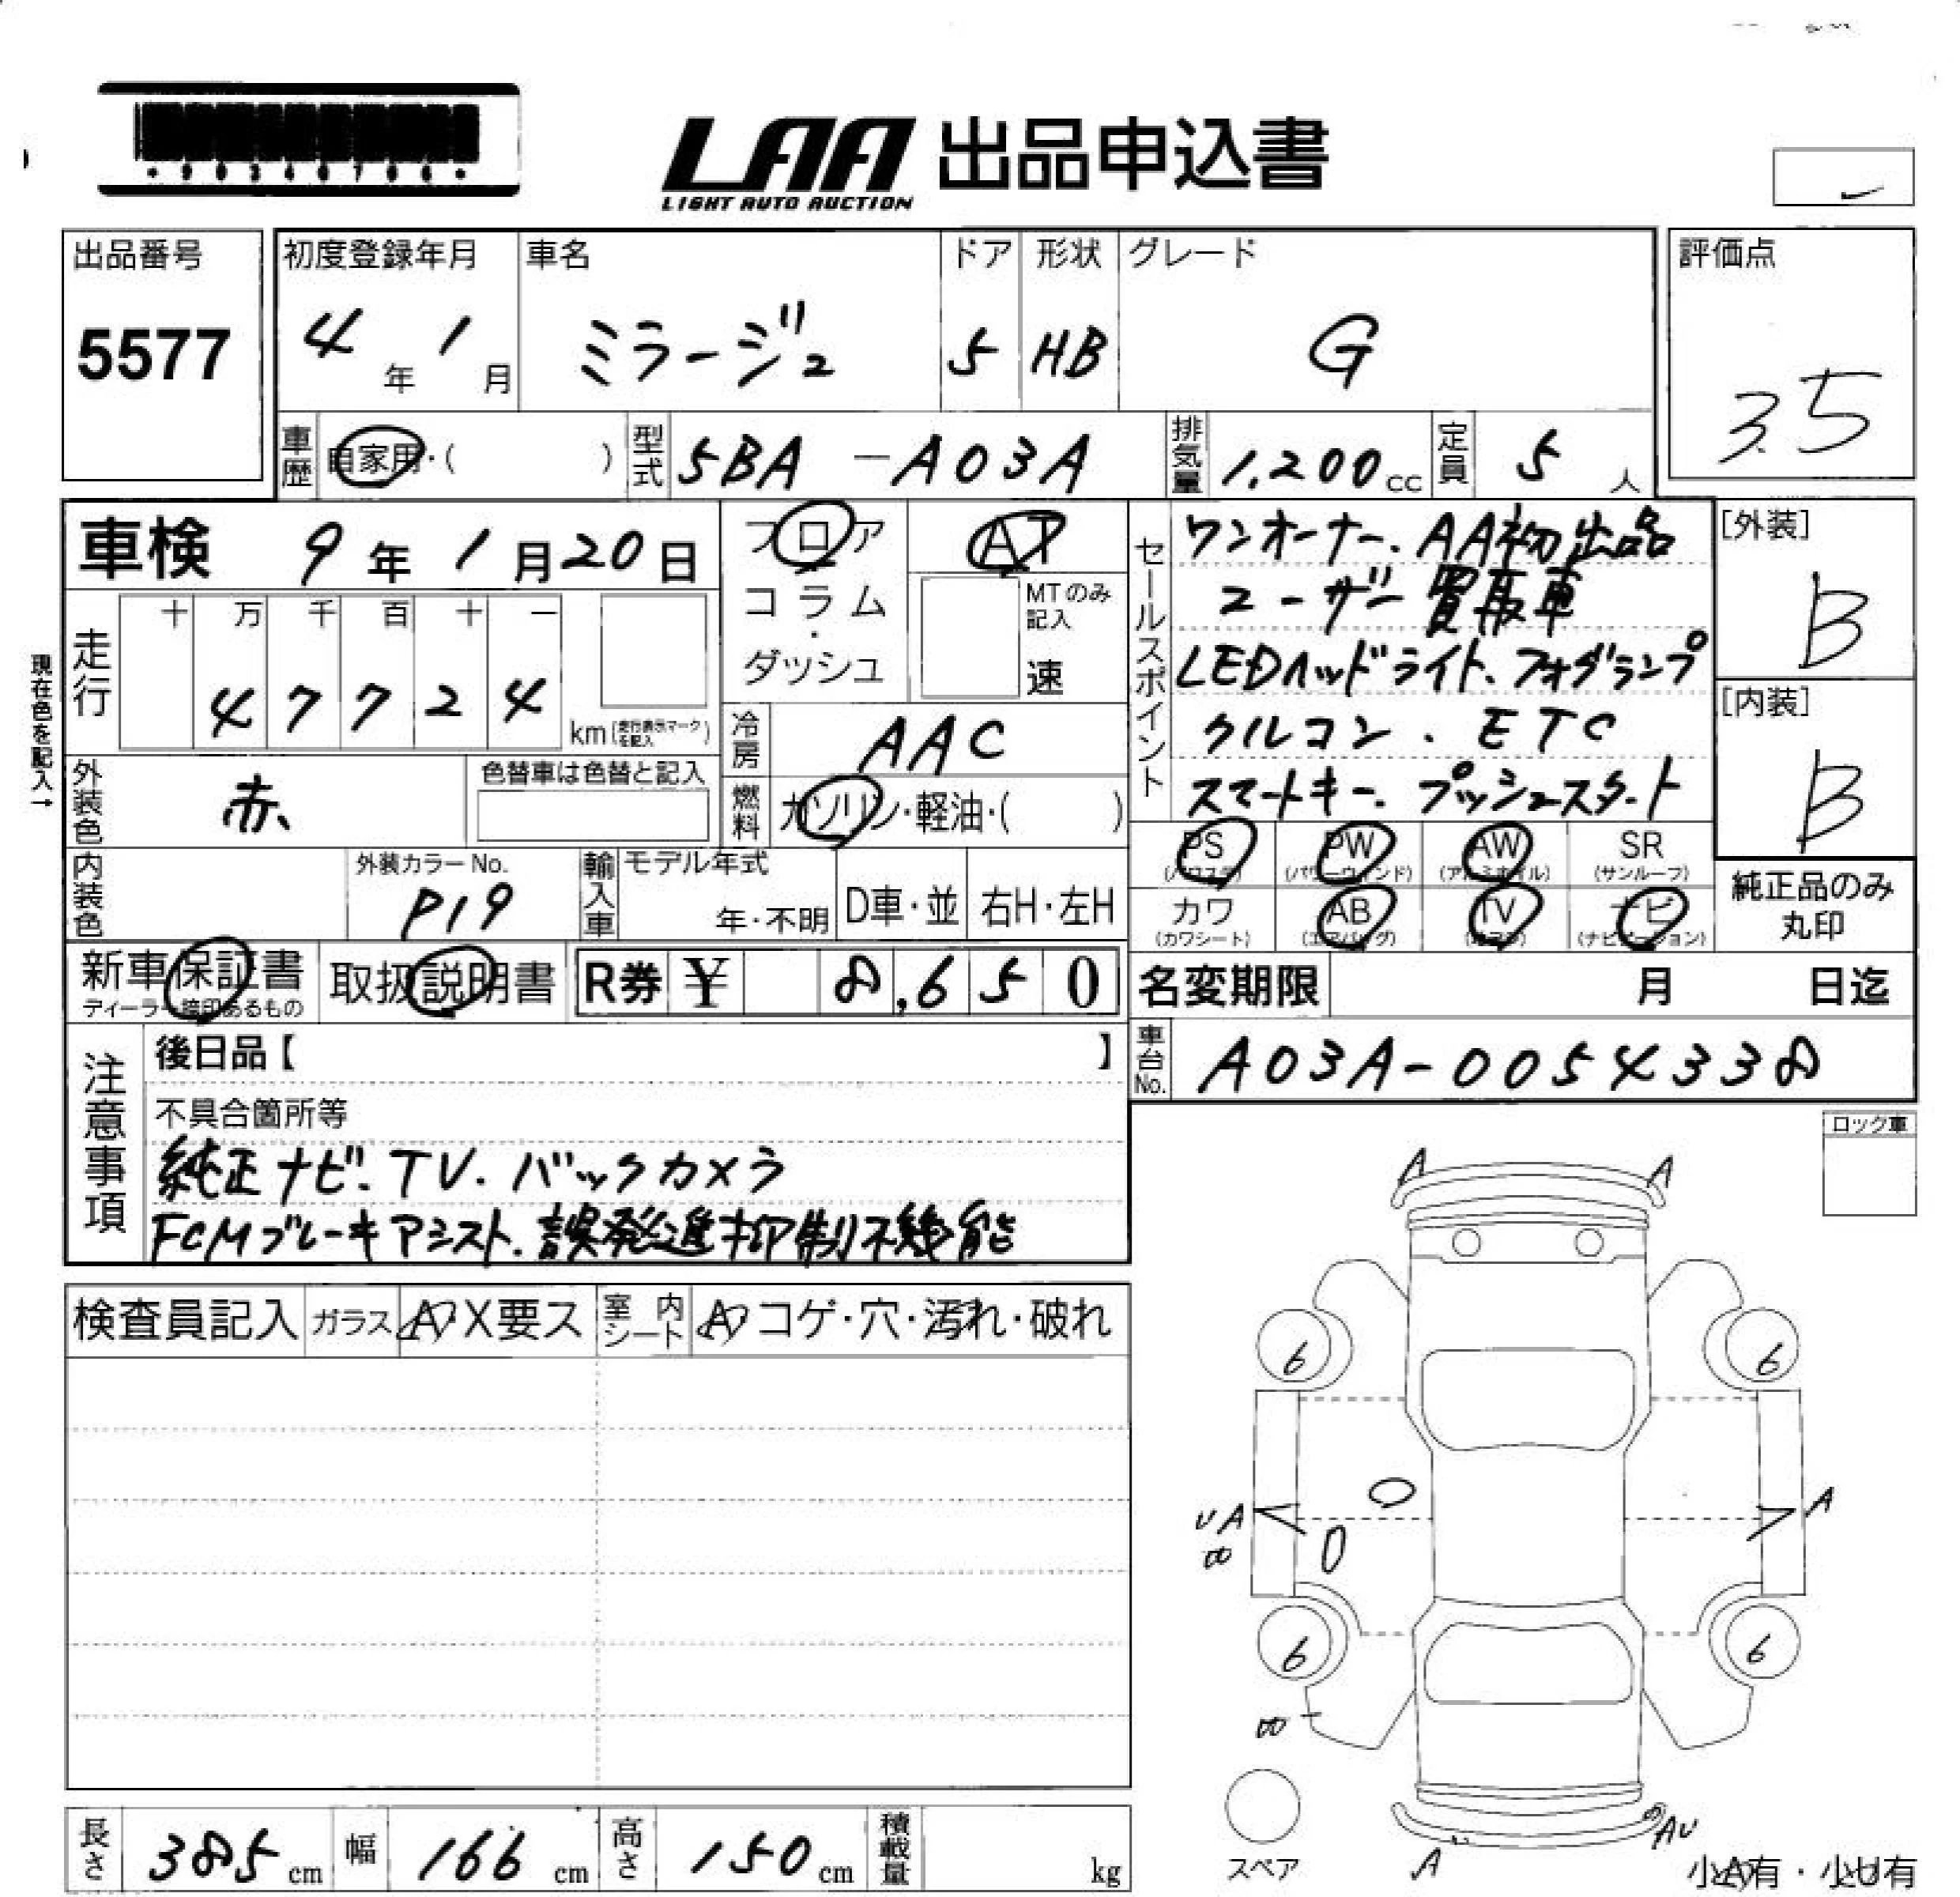 *90240706*
LAA 出品申込書
LIGHT AUTO AUCTION
出品番号
5577
初度登録年月
4年 1月
車名
ミラージュ
ドア
5
形状
HB
グレード
G
評価点
3.5
車歴 自家用・( )
型式 5BA-A03A
排気量 1,200cc
定員 5人
車検 9年 1月20日
フロア
コラム・ダッシュ
AT
MTのみ記入
速
セールスポイント
ワンオーナー、AA初出品
ユーザー買取車
LEDヘッドライト、フォグランプ
クルコン、ETC
スマートキー、プッシュスタート
[外装]
B
[内装]
B
現在色を記入→
走行
十 万 千 百 十 一
4 7 7 2 4
km(走行表示マークを記入)
冷房 AAC
燃料 ガソリン・軽油・( )
外装色 赤
色替車は色替と記入
内装色
外装カラーNo.
P19
輸入車
モデル年式
年・不明
D車・並
右H・左H
PS (パワステ)
PW (パワーウィンド)
AW (アルミホイル)
SR (サンルーフ)
カワ (カワシート)
AB (エアバッグ)
TV
ナビ (ナビゲーション)
純正品のみ丸印
新車保証書
ディーラー捺印あるもの
取扱説明書
R券 ¥ 8,650
名変期限 月 日迄
車台No. A03A-0054338
注意事項
後日品【 】
不具合箇所等
純正ナビ、TV、バックカメラ
FCMブレーキアシスト、誤発進抑制機能
ロック車
検査員記入
ガラス A X要ス
室内シート A コゲ・穴・汚れ・破れ
A A
6 6
UA A
6 6
A AU
スペア
小A有・小U有
長さ 385cm
幅 166cm
高さ 150cm
積載量 kg